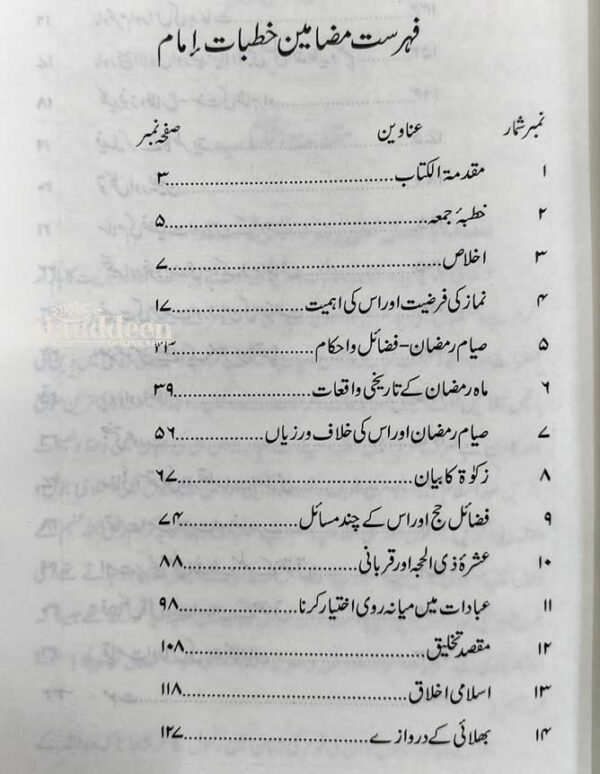 فہرست مضامین خطبات إمام
نمبر شمار عناوین صفحہ نمبر
۱ مقدمۃ الکتاب ۳
۲ خطبۂ جمعہ ۵
۳ اخلاص ۷
۴ نماز کی فرضیت اور اس کی اہمیت ۱۷
۵ صیام رمضان - فضائل و احکام
۶ ماہ رمضان کے تاریخی واقعات ۳۹
۷ صیام رمضان اور اس کی خلاف ورزیاں ۵۶
۸ زکوٰۃ کا بیان ۶۷
۹ فضائل حج اور اس کے چند مسائل ۷۴
۱۰ عشرۂ ذی الحجہ اور قربانی ۸۸
۱۱ عبادات میں میانہ روی اختیار کرنا ۹۸
۱۲ مقصد تخلیق ۱۰۸
۱۳ اسلامی اخلاق ۱۱۸
۱۴ بھلائی کے دروازے ۱۲۷
ONLINE SHOP